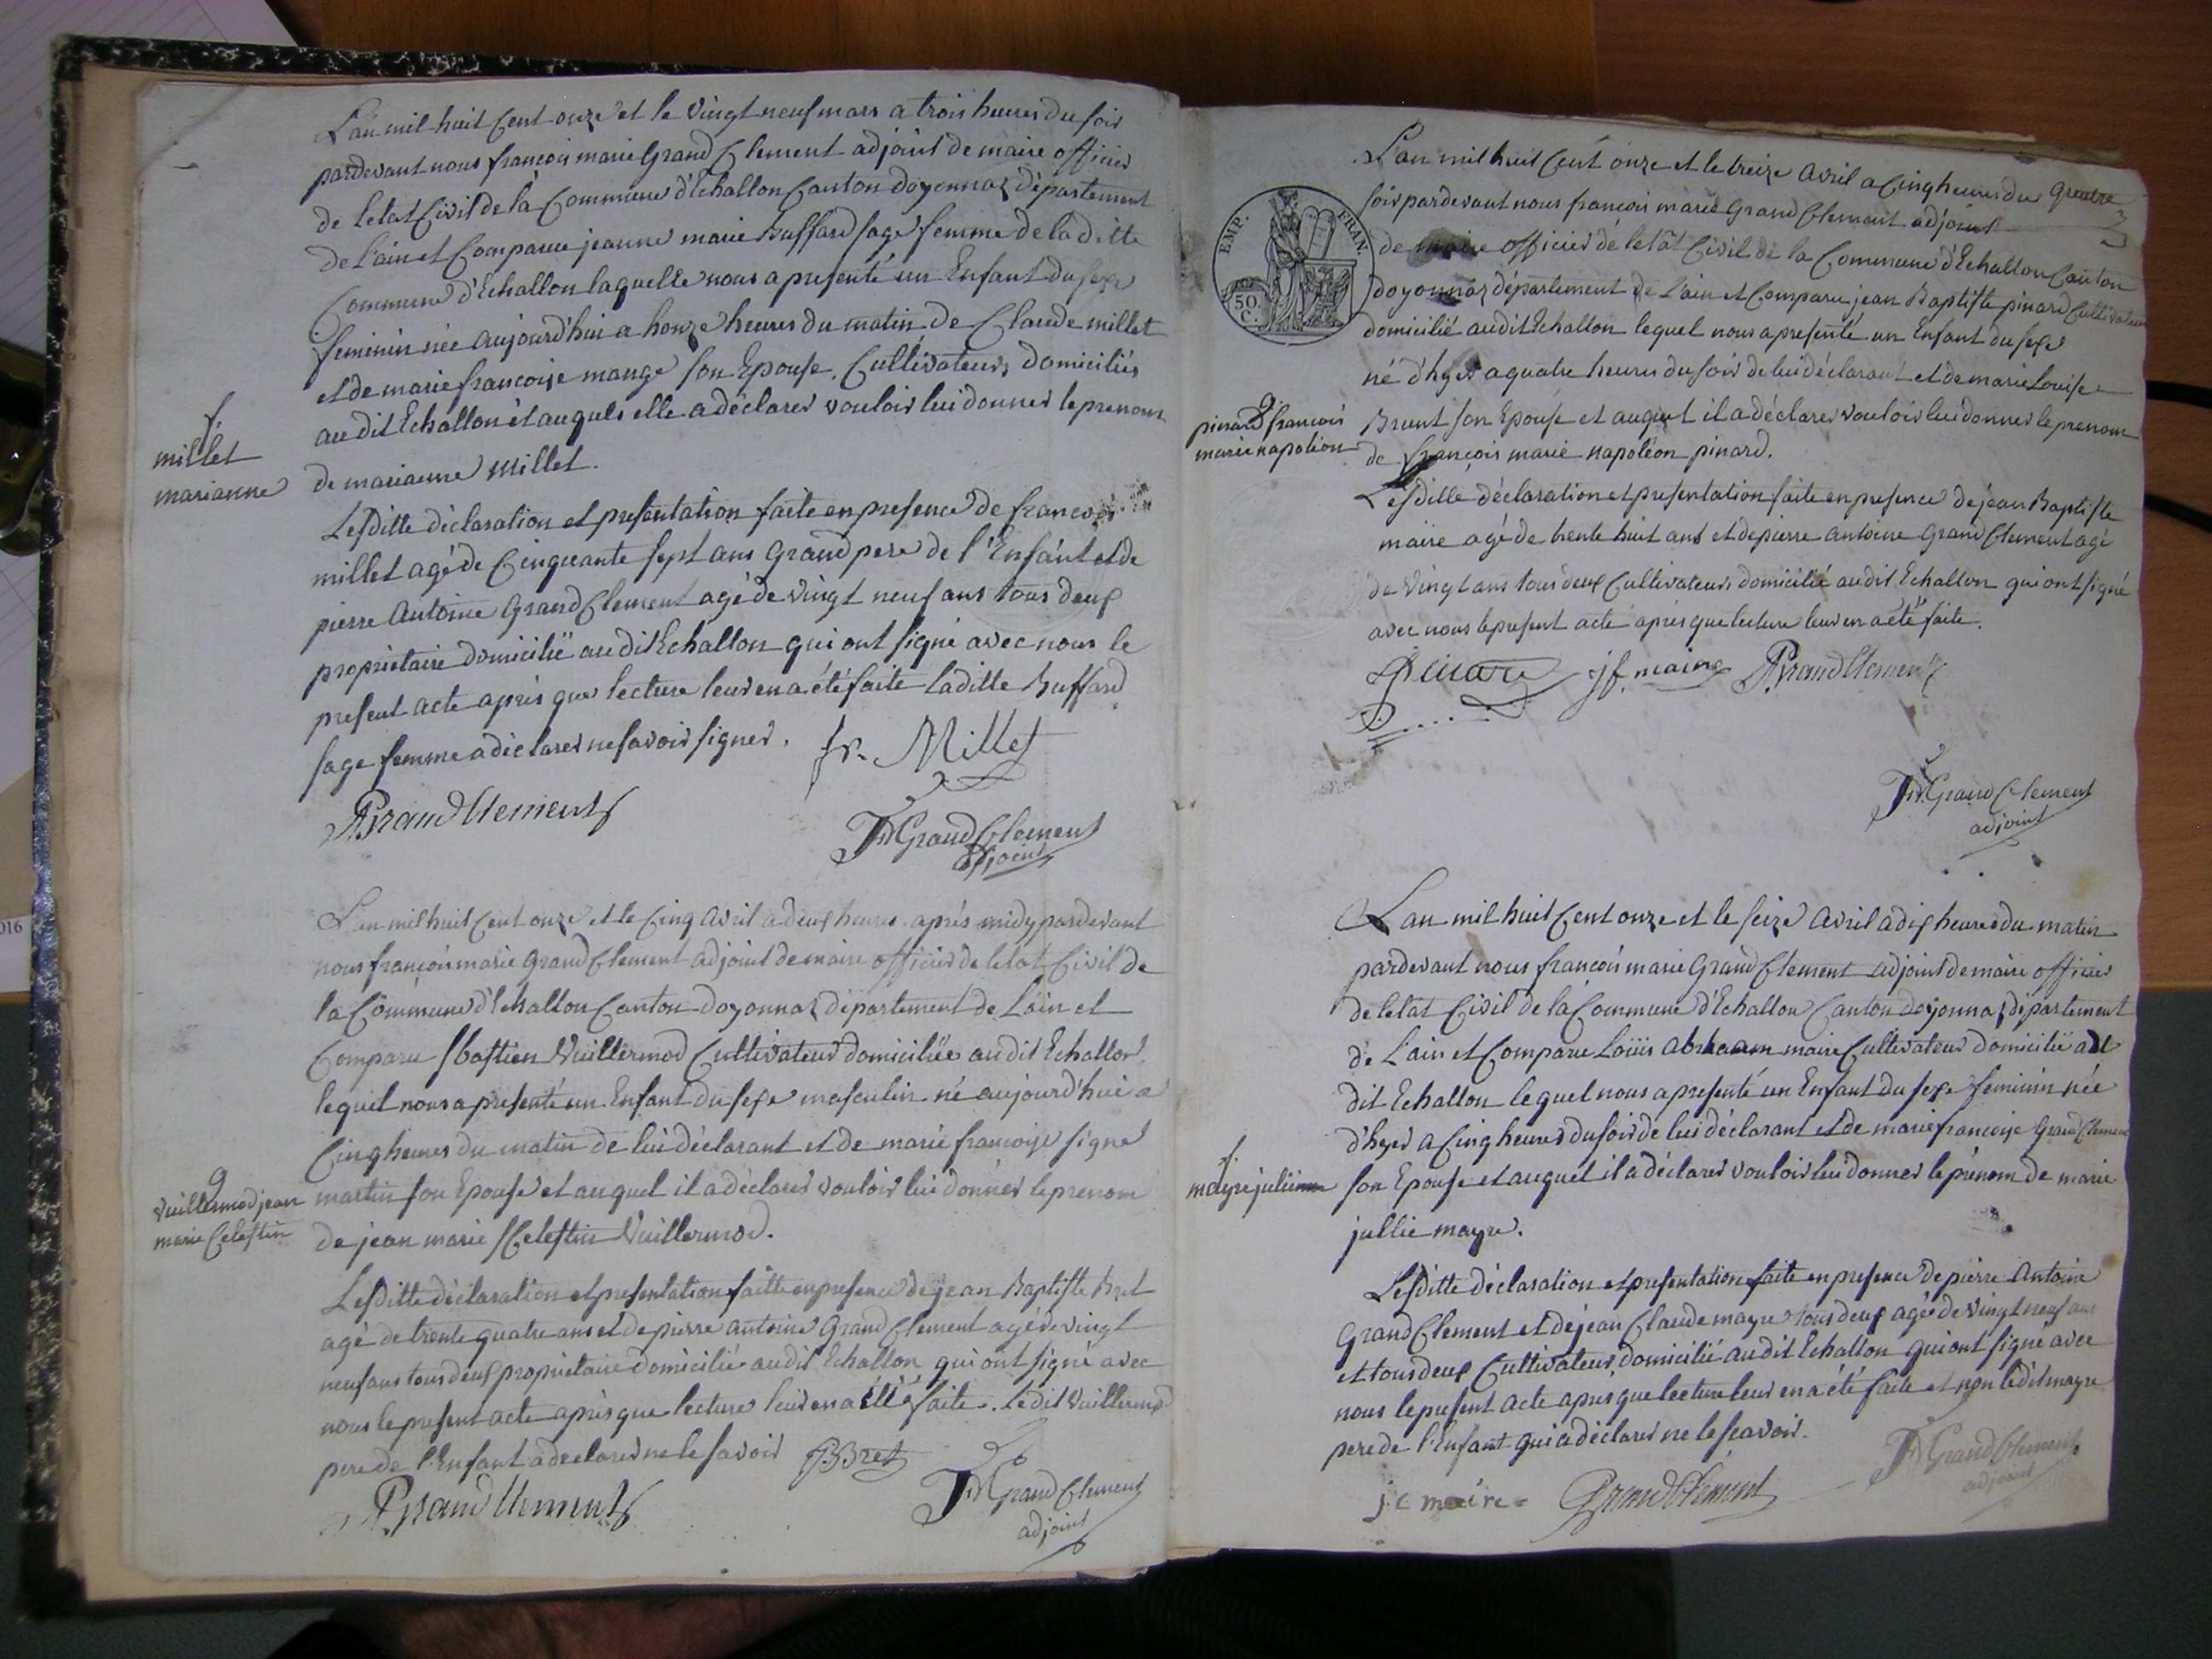 L'an mil huit Cent onze et le vingt neuf mars a trois heures du soir
pardevant nous francois marie Grand Clement adjoint de maire officier
de letat Civil de la Commune d'Echallon Canton doyonnaz département
de L'ain et Comparue jeanne marie Buffard sage femme de la ditte
Commune d'Echallon laquelle nous a presenté un Enfant du sexe
feminin née aujourd'hui a honze heures du matin de Claude millet
et de marie francoise mange son Epouse, Cultivateurs domiciliés
au dit Echallon et auquels elle a déclarer vouloir lui donner le prenom
de marianne Millet.
f.
millet
marianne
Lesditte déclaration et presentation faite en presence de francois
millet agé de Cinquante sept ans Grand pere de l'Enfant et de
pierre Antoine Grand Clement agé de vingt neuf ans tous deux
proprietaire domicilié au dit Echallon qui ont signé avec nous le
present acte aprés que lecture leur en a été faite laditte Buffard
sage femme a déclarer ne savoir signer.
fr. Millet
PGrandClement
FMGrandClement
adjoint
L'an mil huit Cent onze et le Cinq avril a deux heures aprés midy pardevant
nous francois marie Grand Clement adjoint de maire officier de letat Civil de
la Commune d'Echallon Canton doyonnaz département de Lain et
Comparu sbastien Vuillermod Cultivateur domiciliée au dit Echallon,
lequel nous a presenté un Enfant du sexe masculin né aujourd'hui a
Cinq heures du matin de lui déclarant et de marie francoise signe
martin son Epouse et auquel il a déclarer vouloir lui donner le prenom
de jean marie Celestin Vuillermod.
g
vuillermod jean
marie Celestin
Lesditte déclaration et presentation faitte en presence de jean Baptiste Bret
agé de trente quatre ans et de pierre antoine Grand Clement agé de vingt
neuf ans tous deux proprietaire domicilié au dit Echallon qui ont signé avec
nous le present acte aprés que lecture leur en a été faite. Le dit Vuillermod
pere de l'Enfant a declarer ne le savoir
JBBret
PGrandClement
FMGrandClement
adjoint
L'an mil huit Cent onze et le treize avril a Cinq heures du quatre
soir pardevant nous francois marie Grand Clement adjoint
de maire officier de letat Civil de la Commune d'Echallon Canton
doyonnaz département de L'ain et Comparu jean Baptiste pinard Cultivateur
domicilié au dit Echallon lequel nous a presenté un Enfant du sexe
né d'hyer a quatre heures du soir de lui déclarant et de marie Louise
Brunt son Epouse et auquel il a déclarer vouloir lui donner le prenom
de françois marie napoléon pinard.
EMP. FRAN.
50
C.
g
pinard francois
marie napoléon
Lesditte déclaration et presentation faite en presence de jean Baptiste
maire agé de trente huit ans et de pierre antoine Grand Clement agé
de vingt ans tous deux Cultivateurs domicilié au dit Echallon qui ont signé
avec nous le present acte aprés que lecture leur en a été faite.
Pinard
jf maire
PGrandClement
FMGrandClement
adjoint
L'an mil huit Cent onze et le seize avril a dix heures du matin
pardevant nous francois marie Grand Clement adjoint de maire officier
de letat Civil de la Commune d'Echallon Canton doyonnaz département
de L'ain et Comparu Loüis abraam maire Cultivateur domicilié au
dit Echallon lequel nous a presenté un Enfant du sexe feminin née
d'hyer a Cinq heures du soir de lui déclarant et de marie francoise Grand Clement
son Epouse et auquel il a déclarer vouloir lui donner le prénom de marie
jullie mayre.
f.
mayre julie
Lesditte déclaration et presentation faite en presence de pierre Antoine
Grand Clement et de jean Claude mayre tous deux agé de vingt neuf ans
et tous deux Cultivateurs domicilié au dit Echallon qui ont signé avec
nous le present acte aprés que lecture leur en a été faite et non ledit mayre
pere de l'Enfant qui a déclarer ne le scavoir.
j c maire
GrandClement
FMGrandClement
adjoint